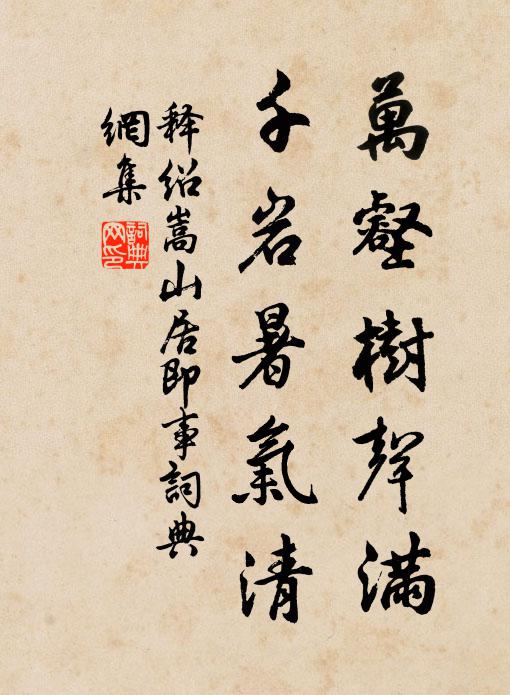 萬壑樹聲滿
千岩暑氣清
释绍嵩山居即事詞典
網集
詞典
网印